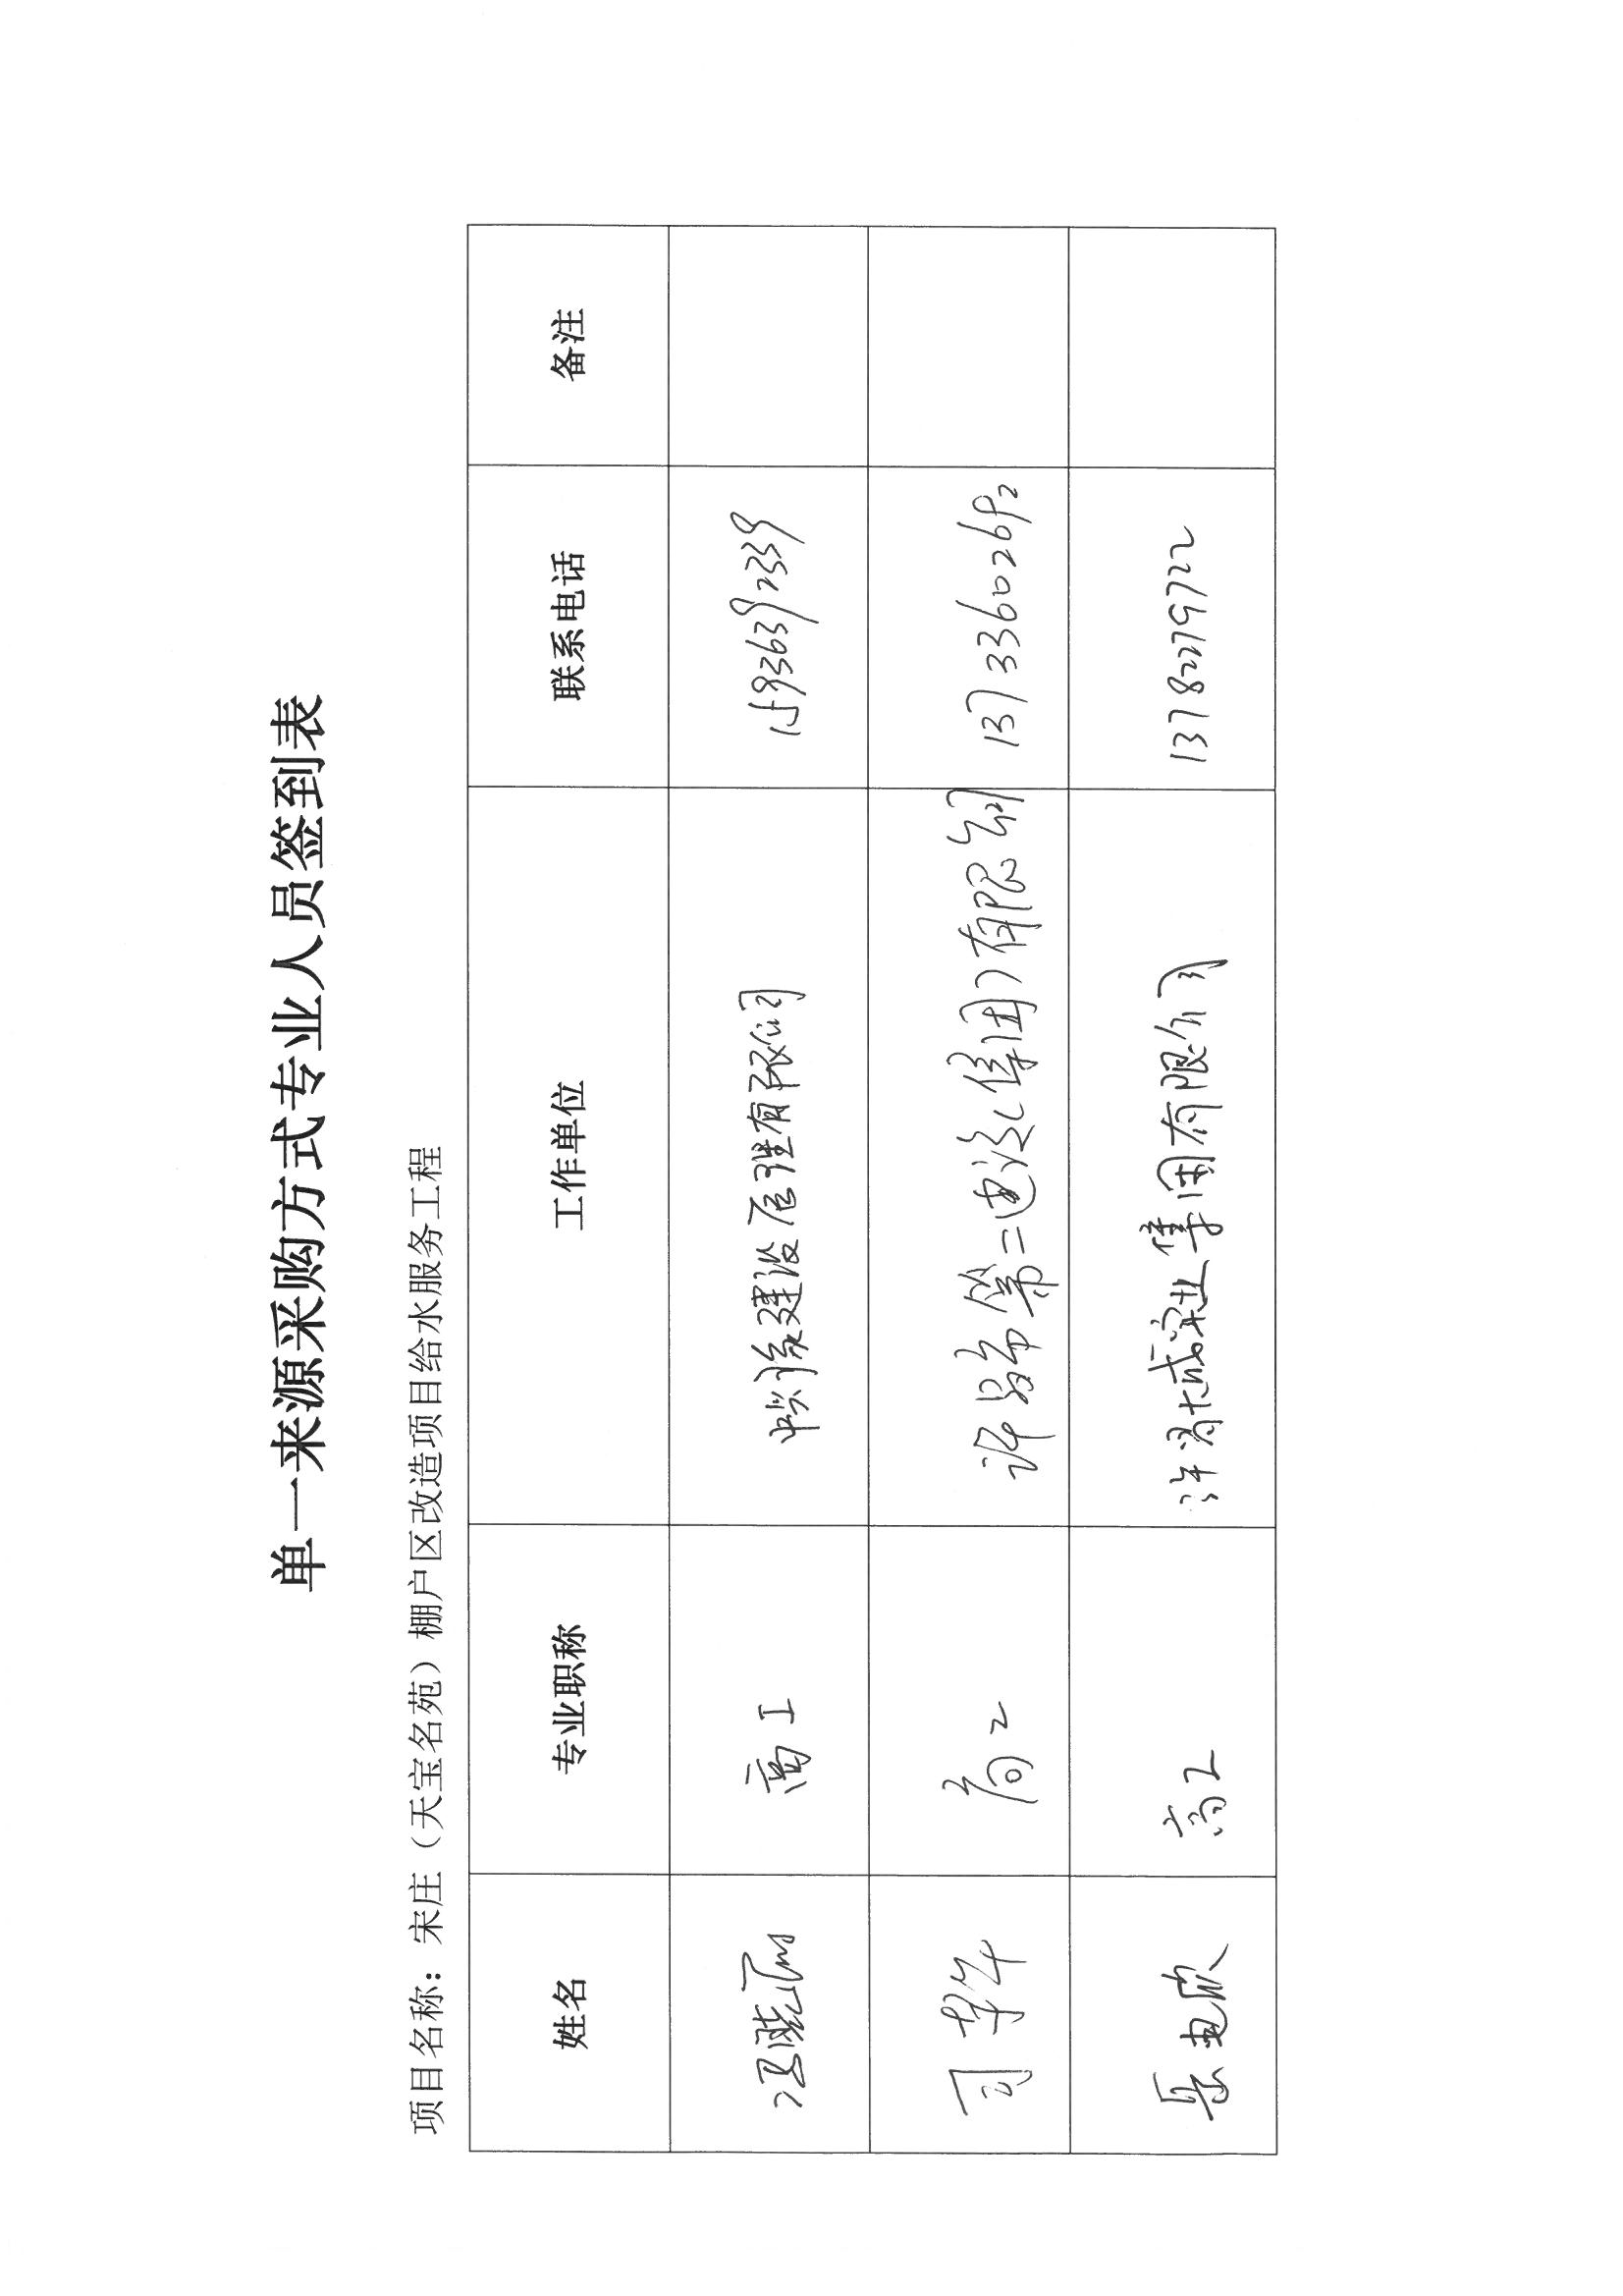 单一来源采购方式专业人员签到表
项目名称：宋庄（天宝名苑）棚户区改造项目给水服务工程
姓名 专业职称 工作单位 联系电话 备注
冯晓 高工 中兴豫建设管理有限公司 15936392339
司 高工 许昌市第二建设（集团）有限公司 13733602692
高工 许昌大成实业集团有限公司 13782279722